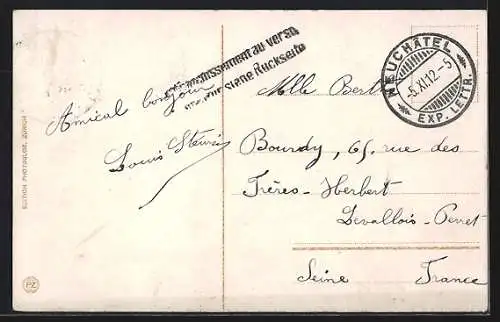 Affranchissement au verso
siehe Rückseite
NEUCHÂTEL
5.XI.12-5
EXP. LETTR.
Amical bonjour
Louis
Mlle Berthe
Bourdy, 65, rue des
Frères-Herbert
Levallois-Perret
Seine France
EDITION PHOTOGLOB, ZÜRICH
PZ